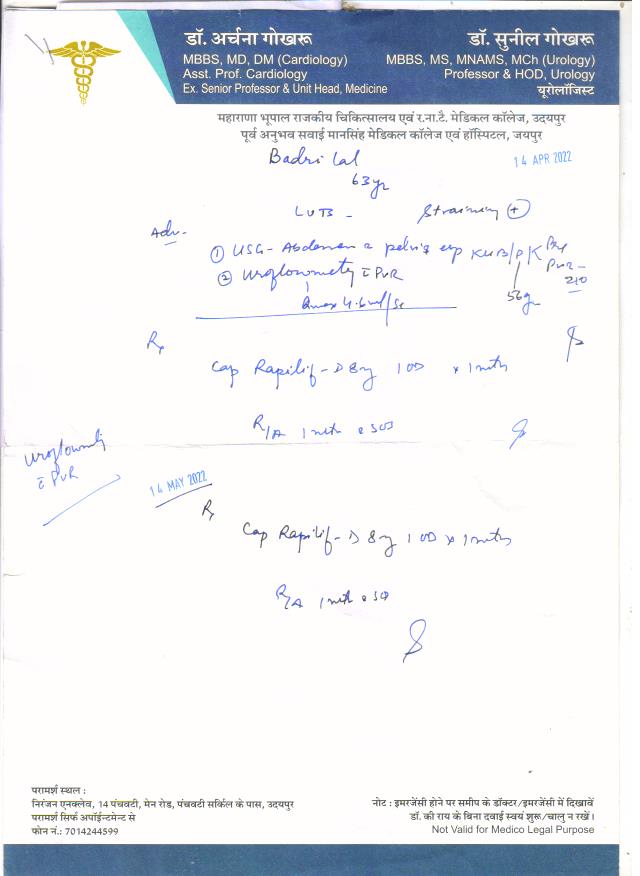 डॉ. अर्चना गोखरू
MBBS, MD, DM (Cardiology)
Asst. Prof. Cardiology
Ex. Senior Professor & Unit Head, Medicine
डॉ. सुनील गोखरू
MBBS, MS, MNAMS, MCh (Urology)
Professor & HOD, Urology
यूरोलॉजिस्ट
महाराणा भूपाल राजकीय चिकित्सालय एवं र.ना.टै. मेडिकल कॉलेज, उदयपुर
पूर्व अनुभव सवाई मानसिंह मेडिकल कॉलेज एवं हॉस्पिटल, जयपुर
Badri Lal
14 APR 2022
63yr
LUTS - Straining (+)
Adv-
① USG - Abdomen & pelvis esp KUB/P
PVR - 210
② Uroflowmetry c̄ PVR
56g
Qmax 4.6 ml/sec
Rx
Cap Rapilif-D 8mg 1 OD x 1 mth
R/A 1 mth
Uroflowmetry
c̄ PVR
14 MAY 2022
Rx
Cap Rapilif-D 8mg 1 OD x 1 mth
R/A 1 mth
परामर्श स्थल :
निरंजन एनक्लेव, 14 पंचवटी, मेन रोड, पंचवटी सर्किल के पास, उदयपुर
परामर्श सिर्फ अपॉईन्टमेन्ट से
फोन नं.: 7014244599
नोट : इमरजेंसी होने पर समीप के डॉक्टर/इमरजेंसी में दिखावें
डॉ. की राय के बिना दवाई स्वयं शुरू/चालु न रखें।
Not Valid for Medico Legal Purpose